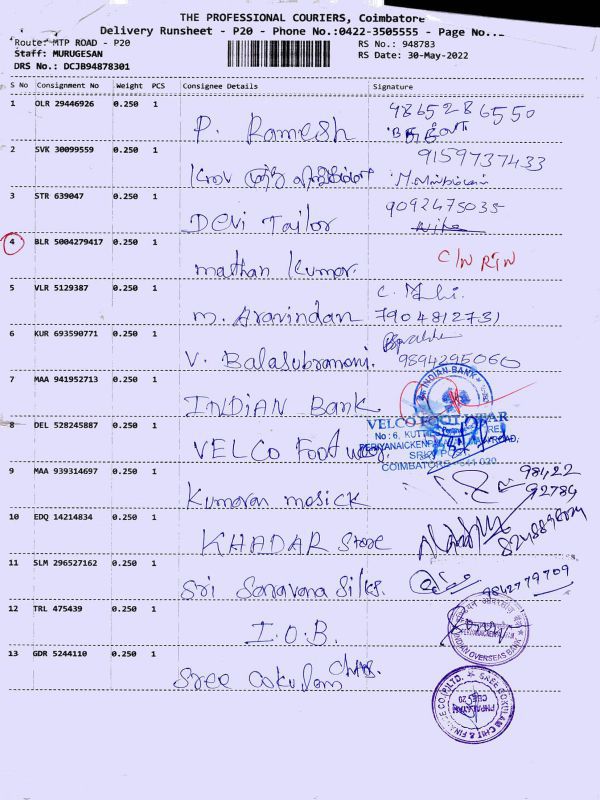 THE PROFESSIONAL COURIERS, Coimbatore
Delivery Runsheet - P20 - Phone No.:0422-3505555 - Page No.:
Route: MTP ROAD - P20
RS No.: 948783
Staff: MURUGESAN
RS Date: 30-May-2022
DRS No.: DCJB94878301
S No Consignment No Weight PCS Consignee Details Signature
1 OLR 29446926 0.250 1 P. Ramesh 9865286550
2 SVK 30099559 0.250 1 9159737433
3 STR 639047 0.250 1 Devi Tailor 9092475035
4 BLR 5004279417 0.250 1 mathan Kumar. C/N RTN
5 VLR 5129387 0.250 1 m. Aravindan 7904812731
6 KUR 693590771 0.250 1 V. Balasubramani. 9894295060
7 MAA 941952713 0.250 1 INDIAN Bank
INDIAN BANK
8 DEL 528245887 0.250 1 VELCO Foot wear.
VELCO FOOT WEAR
No: 6,
COIMBATORE - 641 020
9 MAA 939314697 0.250 1 Kumaran mosick 98422
92784
10 EDQ 14214834 0.250 1 KHADAR Store
11 SLM 296527162 0.250 1 Sri Saravana Silks. 9842779709
12 TRL 475439 0.250 1 I.O.B.
INDIAN OVERSEAS BANK
13 GDR 5244110 0.250 1 Sree Gokulam Chits.
SREE GOKULAM CHIT & FINANCE CO.(P)LTD.
CBE-20